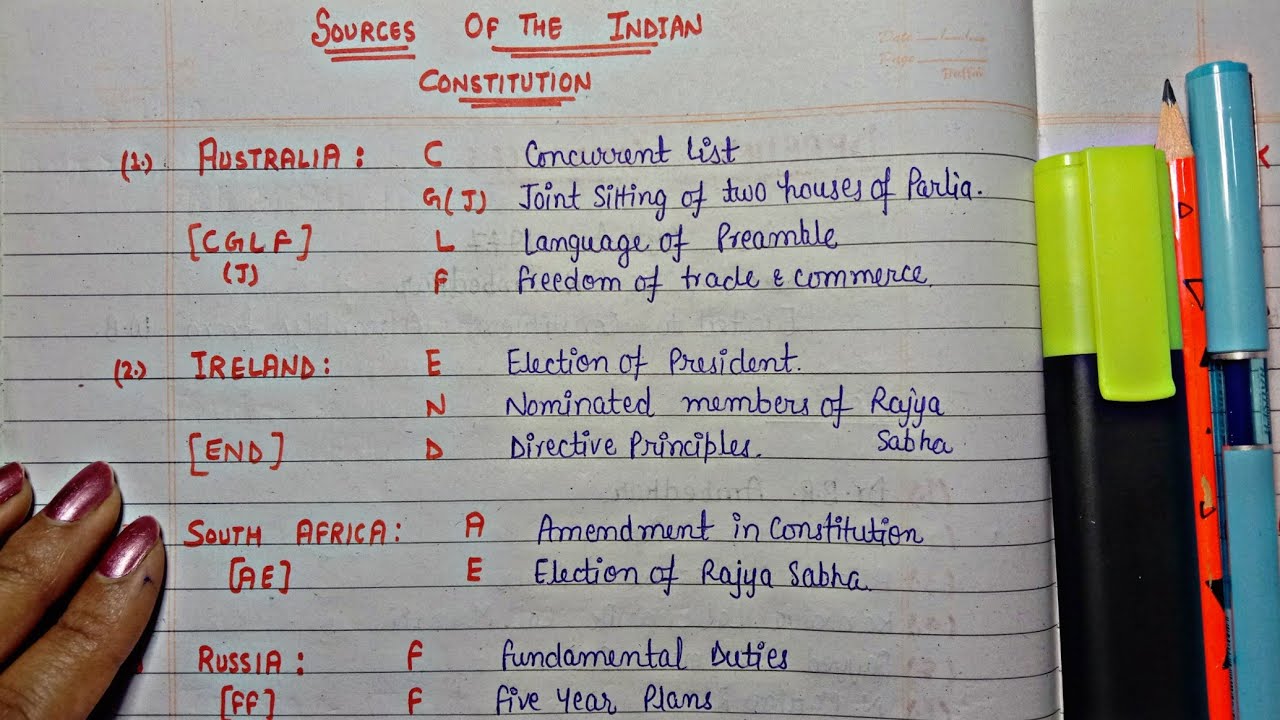 SOURCES OF THE INDIAN
CONSTITUTION
Date
Page
(1.) AUSTRALIA : C Concurrent list
G(J) Joint Sitting of two houses of Parlia.
[CGLF] L Language of Preamble
(J) F freedom of trade & commerce.
(2.) IRELAND : E Election of President.
N Nominated members of Rajya
[END] D Directive Principles. Sabha
SOUTH AFRICA : A Amendment in Constitution
[AE] E Election of Rajya Sabha.
RUSSIA : F fundamental Duties
[FF] F five year Plans